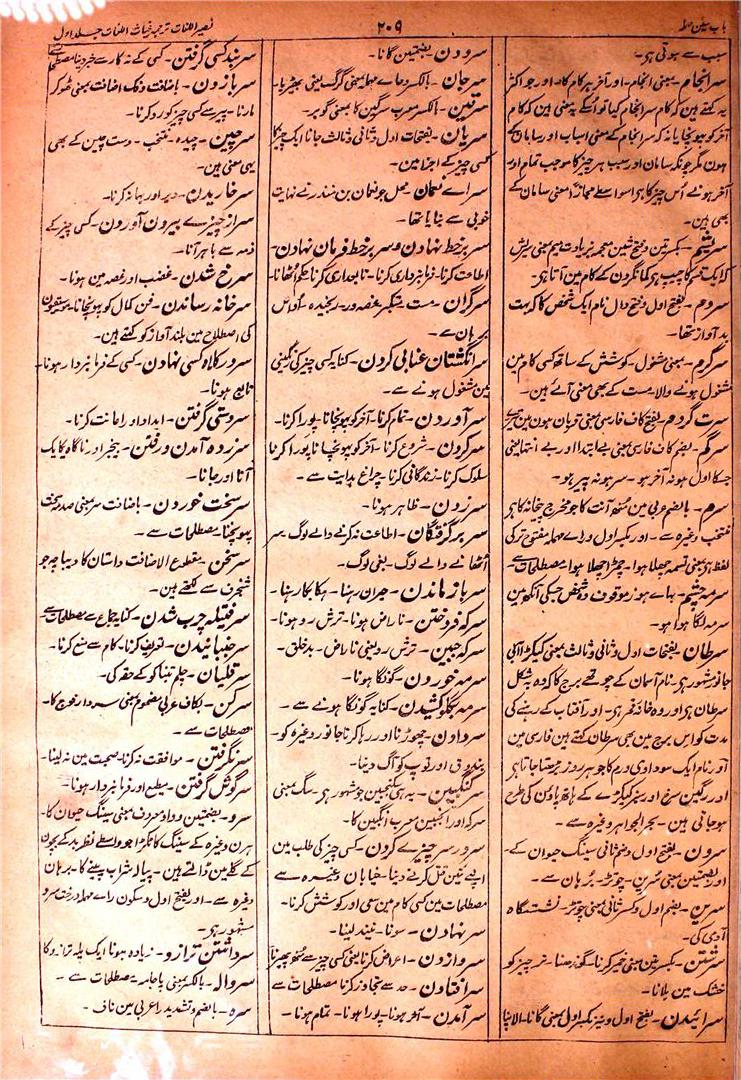 باب سین مع ط
۲۰۹
نصیر اللغات ترجمہ غیاث اللغات جلد اول
سبب سے ہوتی ہو۔
سرانجام۔ بمعنی انجام۔ اور آخر ہر کام کا۔ اور جو اکثر
یہ کہتے ہین کہ کام سرانجام کیا تو اُسکے یہ معنی ہین کہ کام
آخر کو پہونچایا نہ کہ سرانجام کے معنی اسباب اور سامان کے
ہون مگر چونکہ سامان اور سبب ہر چیز کا موجب تمام اور
آخر ہونے اُس چیز کا ہی اسواسطے مجازاً بمعنی سامان کے
بھی ہین۔
سریشم۔ بکسرتین وفتح شین معجمہ بزیادت میم بمعنی سریش
کہ ایک قسم کا چیپ ہو کہ کمانگرون کے کام مین آتا ہی۔
سردم۔ بفتح اول وفتح دال نام ایک شخص کا کہ بہت
بد آواز تھا۔
سرگرم۔ بمعنی مشغول۔ کوشش کے ساتھ کسی کام مین
مشغول ہونے والا۔ مست کے بھی معنی آئے ہین۔
سرت گردم۔ بفتح کاف فارسی بمعنی قربان ہون مین تیرے
سرگم۔ بضم کاف فارسی بمعنی بے ابتدا اور بے انتہا یعنی
جسکا اول ہو نہ آخر ہو۔ سر ہو نہ پیر ہو۔
سرم۔ بالضم عربی مین منھ آنت کا جو مخرج پیخانہ کا ہی
منتخب وغیرہ سے۔ اور بکسر اول و راے مہملہ مفتح ترکی
لفظ ہی بمعنی تسمہ چھلا ہوا۔ چمڑا چھلا ہوا مصطلحات سے۔
سرمہ چشم۔ بہاے ہوز موقوف وہ شخص جسکی آنکھون مین
سرمہ لگا ہوا ہو۔
سرطان۔ بفتحات اول وثانی وثالث بمعنی کیکڑا آبی
جانور مشہور ہی۔ نام آسمان کے چوتھے برج کا کہ وہ بشکل
سرطان ہی اور وہ خانۂ قمر ہی۔ اور آفتاب کے رہنے کی
مدت کو اس برج مین بھی سرطان کہتے ہین فارسی مین
اور نام ایک سوداوی ورم کا جو ہر روز بڑھتا جاتا ہی
اور رگین سرخ اور سبز کیکڑے کے ہاتھ پاؤن کی طرح
ہو جاتی ہین۔ بحر الجواہر وغیرہ سے۔
سرون۔ بفتح اول وضم ثانی سینگ حیوان کے۔
اور بضمتین بمعنی سُرین۔ چوتڑ۔ برہان سے۔
سرین۔ بضم اول وکسر ثانی بمعنی چوتڑ۔ نشستگاہ
آدمی کی۔
سرشتن۔ بکسرتین بمعنی خمیر کرنا۔ گوندھنا۔ تر چیز کو
خشک مین ملانا۔
سرائیدن۔ بفتح اول و نیز بکسر اول بمعنی گانا۔ الاپنا
سرودن۔ بضمتین گانا۔
سرحان۔ بالکسر وحاے مہملہ بمعنی گرگ یعنی بھیڑیا۔
سرقین۔ بالکسر معرب سرگین کا بمعنی گوبر۔
سریان۔ بفتحات اول وثانی وثالث جانا ایک چیز کا
کسی چیز کے اجزا مین۔
سراے نعمان۔ محل جو نعمان بن منذر نے نہایت
خوبی سے بنایا تھا۔
سر بر خط نہادن و سر بر خط فرمان نہادن۔
اطاعت کرنا۔ فرمانبرداری کرنا۔ تابعداری کرنا۔ حکم اُٹھانا۔
سرگران۔ مست۔ متکبر۔ غصہ ور۔ رنجیدہ۔ اُداس
برہان سے۔
سر انگشتان عنابی کردن۔ کنایہ کسی چیز کی رنگینی
مین مشغول ہونے سے۔
سر آوردن۔ تمام کرنا۔ آخر کو پہونچانا۔ پورا کرنا۔
سر کردن۔ شروع کرنا۔ آخر کو پہونچانا۔ پورا کرنا
سلوک کرنا۔ زندگانی کرنا۔ چراغ ہدایت سے۔
سر زدن۔ ظاہر ہونا۔
سر برگرفتگان۔ اطاعت نہ کرنے والے لوگ۔ سر
اُٹھانے والے لوگ۔ بغی لوگ۔
سر باز ماندن۔ حیران رہنا۔ ہکا بکا رہنا۔
سرکہ فروختن۔ ناراض ہونا۔ ترش رو ہونا۔
سرکہ جبین۔ ترش رو یعنی ناراض۔ بدخلق۔
سرمہ خوردن۔ گونگا ہونا۔
سرمہ بگلو کشیدن۔ کنایہ گونگا ہونے سے۔
سر دادن۔ چھوڑنا اور رہا کرنا جانور وغیرہ کو۔
بندوق اور توپ کو آگ دینا۔
سرکنگبین۔ یہ ہی سکنجبین جو مشہور ہی۔ سک بمعنی
سرکہ اور انجبین معرب انگبین کا۔
سر در سر چیزے کردن۔ کسی چیز کی طلب مین
اپنے تئین قتل کرنے دینا۔ خیابان وغیرہ سے
مصطلحات مین کسی کام مین سعی اور کوشش کرنا۔
سر نہادن۔ سونا۔ نیند لینا۔
سر وازدن۔ اعراض کرنا یعنی کسی چیز سے منھ پھیرنا
سر افتادن۔ حد سے تجاوز کرنا مصطلحات سے
سر آمدن۔ آخر ہونا۔ پورا ہونا۔ تمام ہونا۔
کسی گرفتن۔ کسی کے
سر باز زدن۔ باضافت وفک اضافت بمعنی ٹھوکر
مارنا۔ پیر سے کسی چیز کو رد کرنا۔
سرچین۔ چیدہ۔ منتخب۔ دست چین کے بھی
یہی معنی ہین۔
سر خاریدن۔ دیر اور بہانہ کرنا۔
سر از چیزے بیرون آوردن۔ کسی چیز کے
ذمہ سے باہر آنا۔
سرخ شدن۔ غضب اور غصہ مین ہونا۔
سر خانہ رساندن۔ فن کمال کو پہونچانا۔
کی اصطلاح مین بلند آواز کو کہتے ہین۔
سر در کلاہ کسی نہادن۔ کسی کے فرمانبردار ہونا۔
تابع ہونا۔
سر دستی گرفتن۔ امداد اور اعانت کرنا۔
سر زدہ آمدن و رفتن۔ بیخبر اور ناگاہ یکایک
آنا اور جانا۔
سر سخت خوردن۔ باضافت سر بمعنی صدمہ سخت
پہونچنا۔ مصطلحات سے۔
سر سخن۔ مقطوع الاضافت داستان کا دیباچہ جو
شنجرف سے لکھتے ہین۔
سر فتیلہ چرب شدن۔ کنایہ جماع سے مصطلحات سے
سر جنبانیدن۔ تعریف کرنا۔ کام سے منع کرنا۔
سر قلیان۔ چلم تنباکو کے حقہ کی۔
سرکن۔ بکاف عربی مضموم بمعنی سردار فوج کا۔
مصطلحات سے۔
سر نگرفتن۔ موافقت نہ کرنا۔ صحبت مین نہ لینا۔
سر گوش گرفتن۔ مطیع اور فرمانبردار ہونا۔
سرو۔ بضمتین و واو معروف بمعنی سینگ حیوان کا۔
ہرن وغیرہ کے سینگ کا ٹکڑا جو واسطے نظر بد کے بچون
کے گلے مین ڈالتے ہین۔ پیالہ شراب پینے کا۔ برہان
وغیرہ سے۔ اور بفتح اول وسکون راے مہملہ درخت سرو
مشہور ہو۔
سر داشتن ترازو۔ زیادہ ہونا ایک پلہ ترازو کا
سروالہ۔ بالکسر بمعنی پاجامہ مصطلحات سے۔
سرہ۔ بالضم وتشدید را عربی مین ناف۔